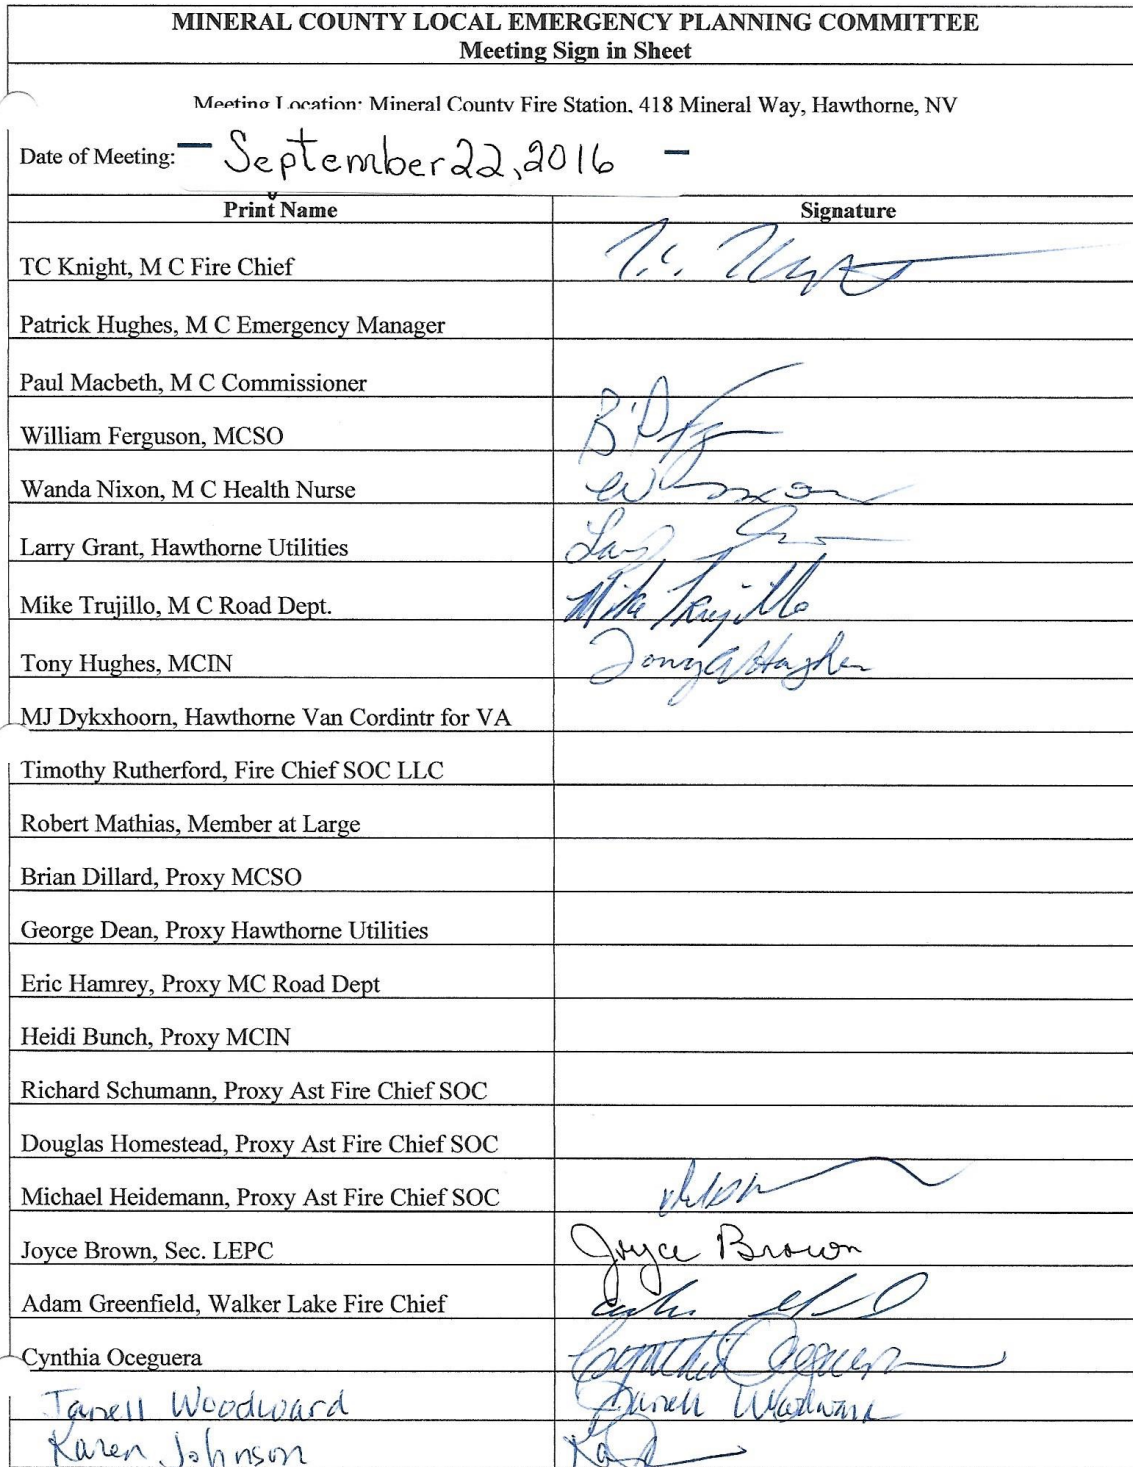 MINERAL COUNTY LOCAL EMERGENCY PLANNING COMMITTEE
Meeting Sign in Sheet
Meeting Location: Mineral County Fire Station, 418 Mineral Way, Hawthorne, NV
Date of Meeting: - September 22, 2016 -
Print Name Signature
TC Knight, M C Fire Chief
Patrick Hughes, M C Emergency Manager
Paul Macbeth, M C Commissioner
William Ferguson, MCSO
Wanda Nixon, M C Health Nurse
Larry Grant, Hawthorne Utilities
Mike Trujillo, M C Road Dept. Mike Trujillo
Tony Hughes, MCIN Tony Hughes
MJ Dykxhoorn, Hawthorne Van Cordintr for VA
Timothy Rutherford, Fire Chief SOC LLC
Robert Mathias, Member at Large
Brian Dillard, Proxy MCSO
George Dean, Proxy Hawthorne Utilities
Eric Hamrey, Proxy MC Road Dept
Heidi Bunch, Proxy MCIN
Richard Schumann, Proxy Ast Fire Chief SOC
Douglas Homestead, Proxy Ast Fire Chief SOC
Michael Heidemann, Proxy Ast Fire Chief SOC
Joyce Brown, Sec. LEPC Joyce Brown
Adam Greenfield, Walker Lake Fire Chief
Cynthia Oceguera Cynthia Oceguera
Janell Woodward Janell Woodward
Karen Johnson